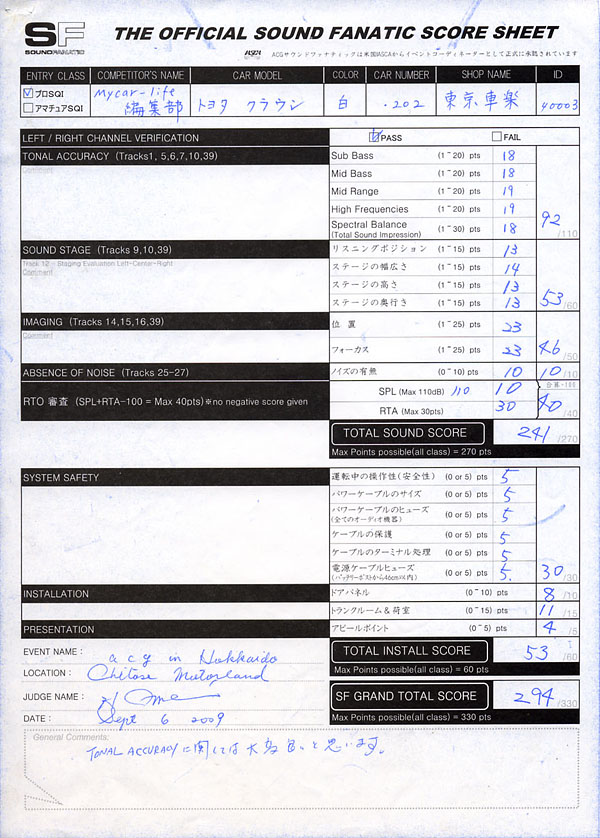 SF SOUNDFANATIC THE OFFICIAL SOUND FANATIC SCORE SHEET
IASCA ACGサウンドファナティックは米国IASCAからイベントコーディネーターとして正式に承認されています
ENTRY CLASS COMPETITOR'S NAME CAR MODEL COLOR CAR NUMBER SHOP NAME ID
プロSQI Mycar-life
アマチュアSQI 編集部 トヨタ クラウン 白 ・202 東京車楽 40003
LEFT / RIGHT CHANNEL VERIFICATION PASS FAIL
TONAL ACCURACY (Tracks1, 5,6,7,10,39) Sub Bass (1~20) pts 18
Comment
Mid Bass (1~20) pts 18
Mid Range (1~20) pts 19
High Frequencies (1~20) pts 19
Spectral Balance (1~30) pts 18 92 /110
(Total Sound Impression)
SOUND STAGE (Tracks 9,10,39) リスニングポジション (1~15) pts 13
Track 12 - Staging Evaluation Left-Center-Right
Comment
ステージの幅広さ (1~15) pts 14
ステージの高さ (1~15) pts 13
ステージの奥行き (1~15) pts 13 53 /60
IMAGING (Tracks 14,15,16,39) 位置 (1~25) pts 23
Comment
フォーカス (1~25) pts 23 46 /50
ABSENCE OF NOISE (Tracks 25-27) ノイズの有無 (0~10) pts 10 10 /10
RTO 審査 (SPL+RTA-100 = Max 40pts)※no negative score given SPL (Max 110dB) 110 10 合算-100
RTA (Max 30pts) 30 40 /40
TOTAL SOUND SCORE 241 /270
Max Points possible(all class) = 270 pts
SYSTEM SAFETY 運転中の操作性(安全性) (0 or 5) pts 5
パワーケーブルのサイズ (0 or 5) pts 5
パワーケーブルのヒューズ (0 or 5) pts 5
(全てのオーディオ機器)
ケーブルの保護 (0 or 5) pts 5
ケーブルのターミナル処理 (0 or 5) pts 5
電源ケーブルヒューズ (0 or 5) pts 5. 30 /30
(バッテリーポストから46cm以内)
INSTALLATION ドアパネル (0~10) pts 8 /10
トランクルーム&荷室 (0~15) pts 11 /15
PRESENTATION アピールポイント (0~5) pts 4 /5
EVENT NAME : acg in Hokkaido TOTAL INSTALL SCORE 53 /60
LOCATION : Chitose Motorland Max Points possible(all class) = 60 pts
JUDGE NAME : SF GRAND TOTAL SCORE 294 /330
DATE : Sept 6 2009 Max Points possible(all class) = 330 pts
General Comments:
TONAL ACCURACY に関しては大変良いと思います。